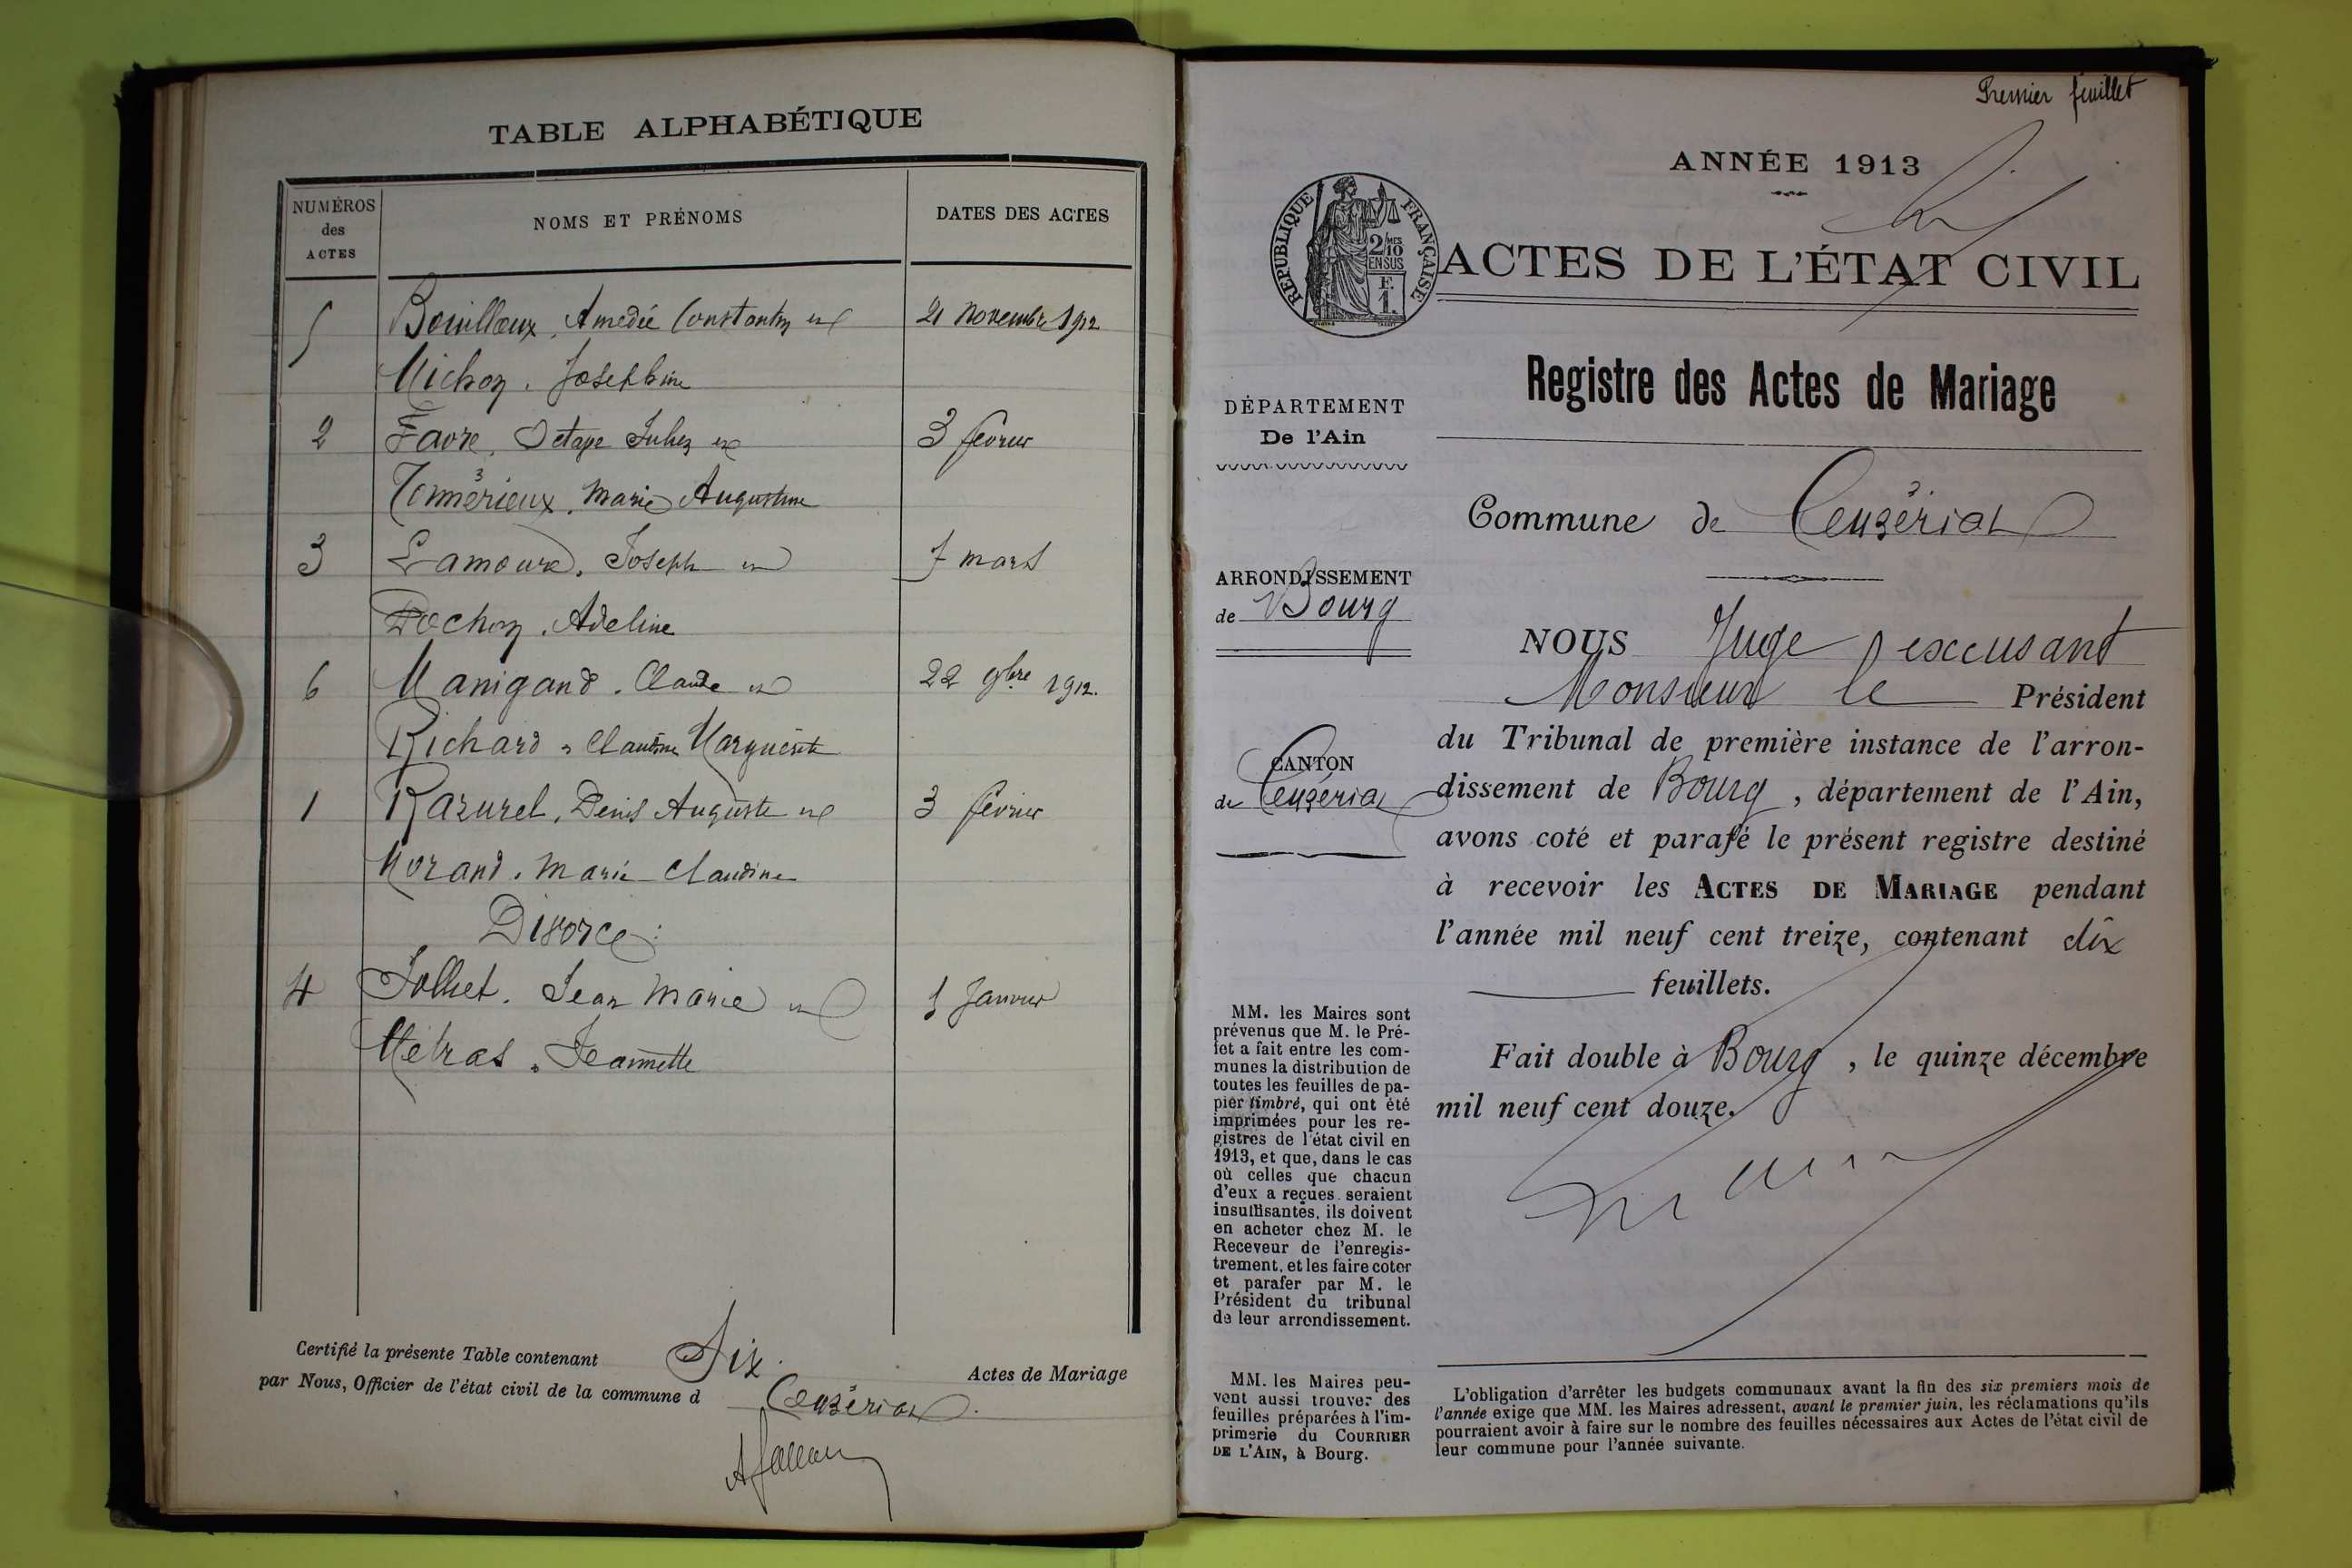 TABLE ALPHABÉTIQUE
NUMÉROS
des
ACTES
NOMS ET PRÉNOMS
DATES DES ACTES
5 Bouilloux, Amedée Constantin et 21 Novembre 1912
Michon, Josephine
2 Favre, Octave Jules et 3 fevrier
Tonnérieux, Marie Augustine
3 Lamoure, Joseph et 7 mars
Pochon, Adeline
6 Manigand, Claude et 22 9bre 1912.
Richard, Claudine Marguerite
1 Razurel, Denis Auguste et 3 fevrier
Morand, Marie Claudine
Divorce:
4 Jolliet, Jean Marie et Janvier
Métras, Jeannette
Certifié la présente Table contenant Six Actes de Mariage
par Nous, Officier de l'état civil de la commune d Ceyzériat.
Premier feuillet
ANNÉE 1913
RÉPUBLIQUE FRANÇAISE
2/10 MES
EN SUS
F.
1.
ACTES DE L'ÉTAT CIVIL
Registre des Actes de Mariage
DÉPARTEMENT
De l'Ain
ARRONDISSEMENT
de Bourg
CANTON
de Ceyzériat
MM. les Maires sont
prévenus que M. le Pré-
fet a fait entre les com-
munes la distribution de
toutes les feuilles de pa-
pier timbré, qui ont été
imprimées pour les re-
gistres de l'état civil en
1913, et que, dans le cas
où celles que chacun
d'eux a reçues seraient
insuffisantes, ils doivent
en acheter chez M. le
Receveur de l'enregis-
trement, et les faire coter
et parafer par M. le
Président du tribunal
de leur arrondissement.
MM. les Maires peu-
vent aussi trouver des
feuilles préparées à l'im-
primerie du COURRIER
DE L'AIN, à Bourg.
Commune de Ceyzériat
NOUS Juge excusant
Monsieur le Président
du Tribunal de première instance de l'arron-
dissement de Bourg, département de l'Ain,
avons coté et parafé le présent registre destiné
à recevoir les ACTES DE MARIAGE pendant
l'année mil neuf cent treize, contenant dix
feuillets.
Fait double à Bourg, le quinze décembre
mil neuf cent douze.
L'obligation d'arrêter les budgets communaux avant la fin des six premiers mois de
l'année exige que MM. les Maires adressent, avant le premier juin, les réclamations qu'ils
pourraient avoir à faire sur le nombre des feuilles nécessaires aux Actes de l'état civil de
leur commune pour l'année suivante.